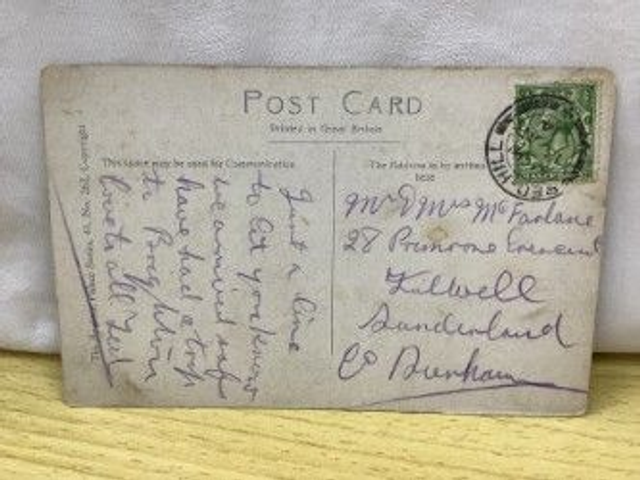 POST CARD
Printed in Great Britain
This space may be used for Communication
The Address to be written here
Just a line
to let you know
we arrived safe
have had a trip
to Brighton
Love to all
Mr & Mrs McFarlane
28 Primrose Crescent
Fulwell
Sunderland
Co Durham
HILL
RED
Copyright